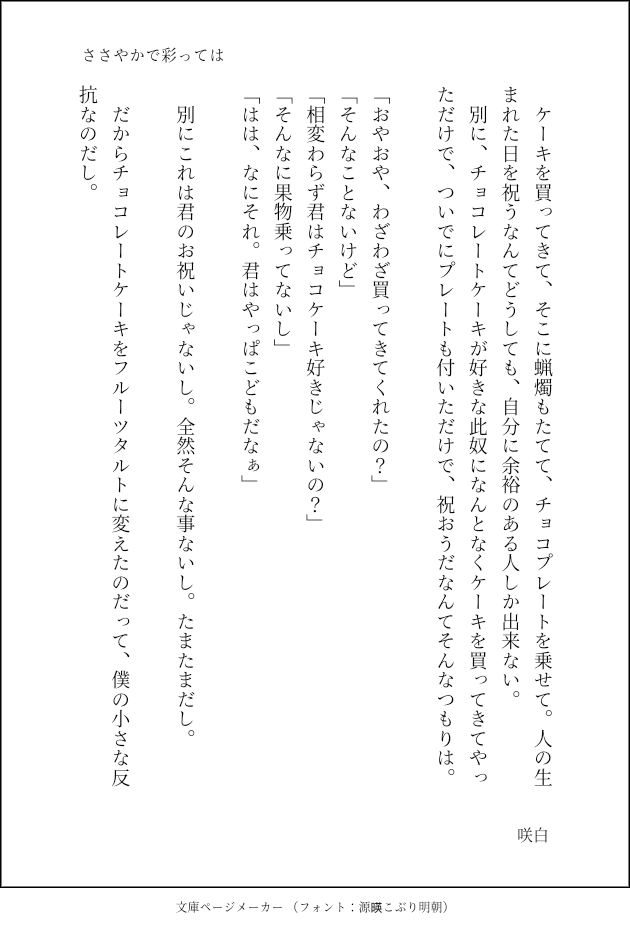 ささやかで彩っては
　ケーキを買ってきて、そこに蝋燭もたてて、チョコプレートを乗せて。人の生
まれた日を祝うなんてどうしても、自分に余裕のある人しか出来ない。
　別に、チョコレートケーキが好きな此奴になんとなくケーキを買ってきてやっ
ただけで、ついでにプレートも付いただけで、祝おうだなんてそんなつもりは。
「おやおや、わざわざ買ってきてくれたの？」
「そんなことないけど」
「相変わらず君はチョコケーキ好きじゃないの？」
「そんなに果物乗ってないし」
「はは、なにそれ。君はやっぱこどもだなぁ」
　別にこれは君のお祝いじゃないし。全然そんな事ないし。たまたまだし。
　だからチョコレートケーキをフルーツタルトに変えたのだって、僕の小さな反
抗なのだし。
咲白
文庫ページメーカー（フォント：源暎こぶり明朝）